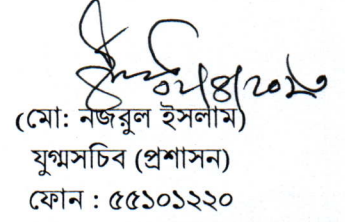 ০২/৪/২০১৩
(মো: নজরুল ইসলাম)
যুগ্মসচিব (প্রশাসন)
ফোন : ৫৫১০১২২০